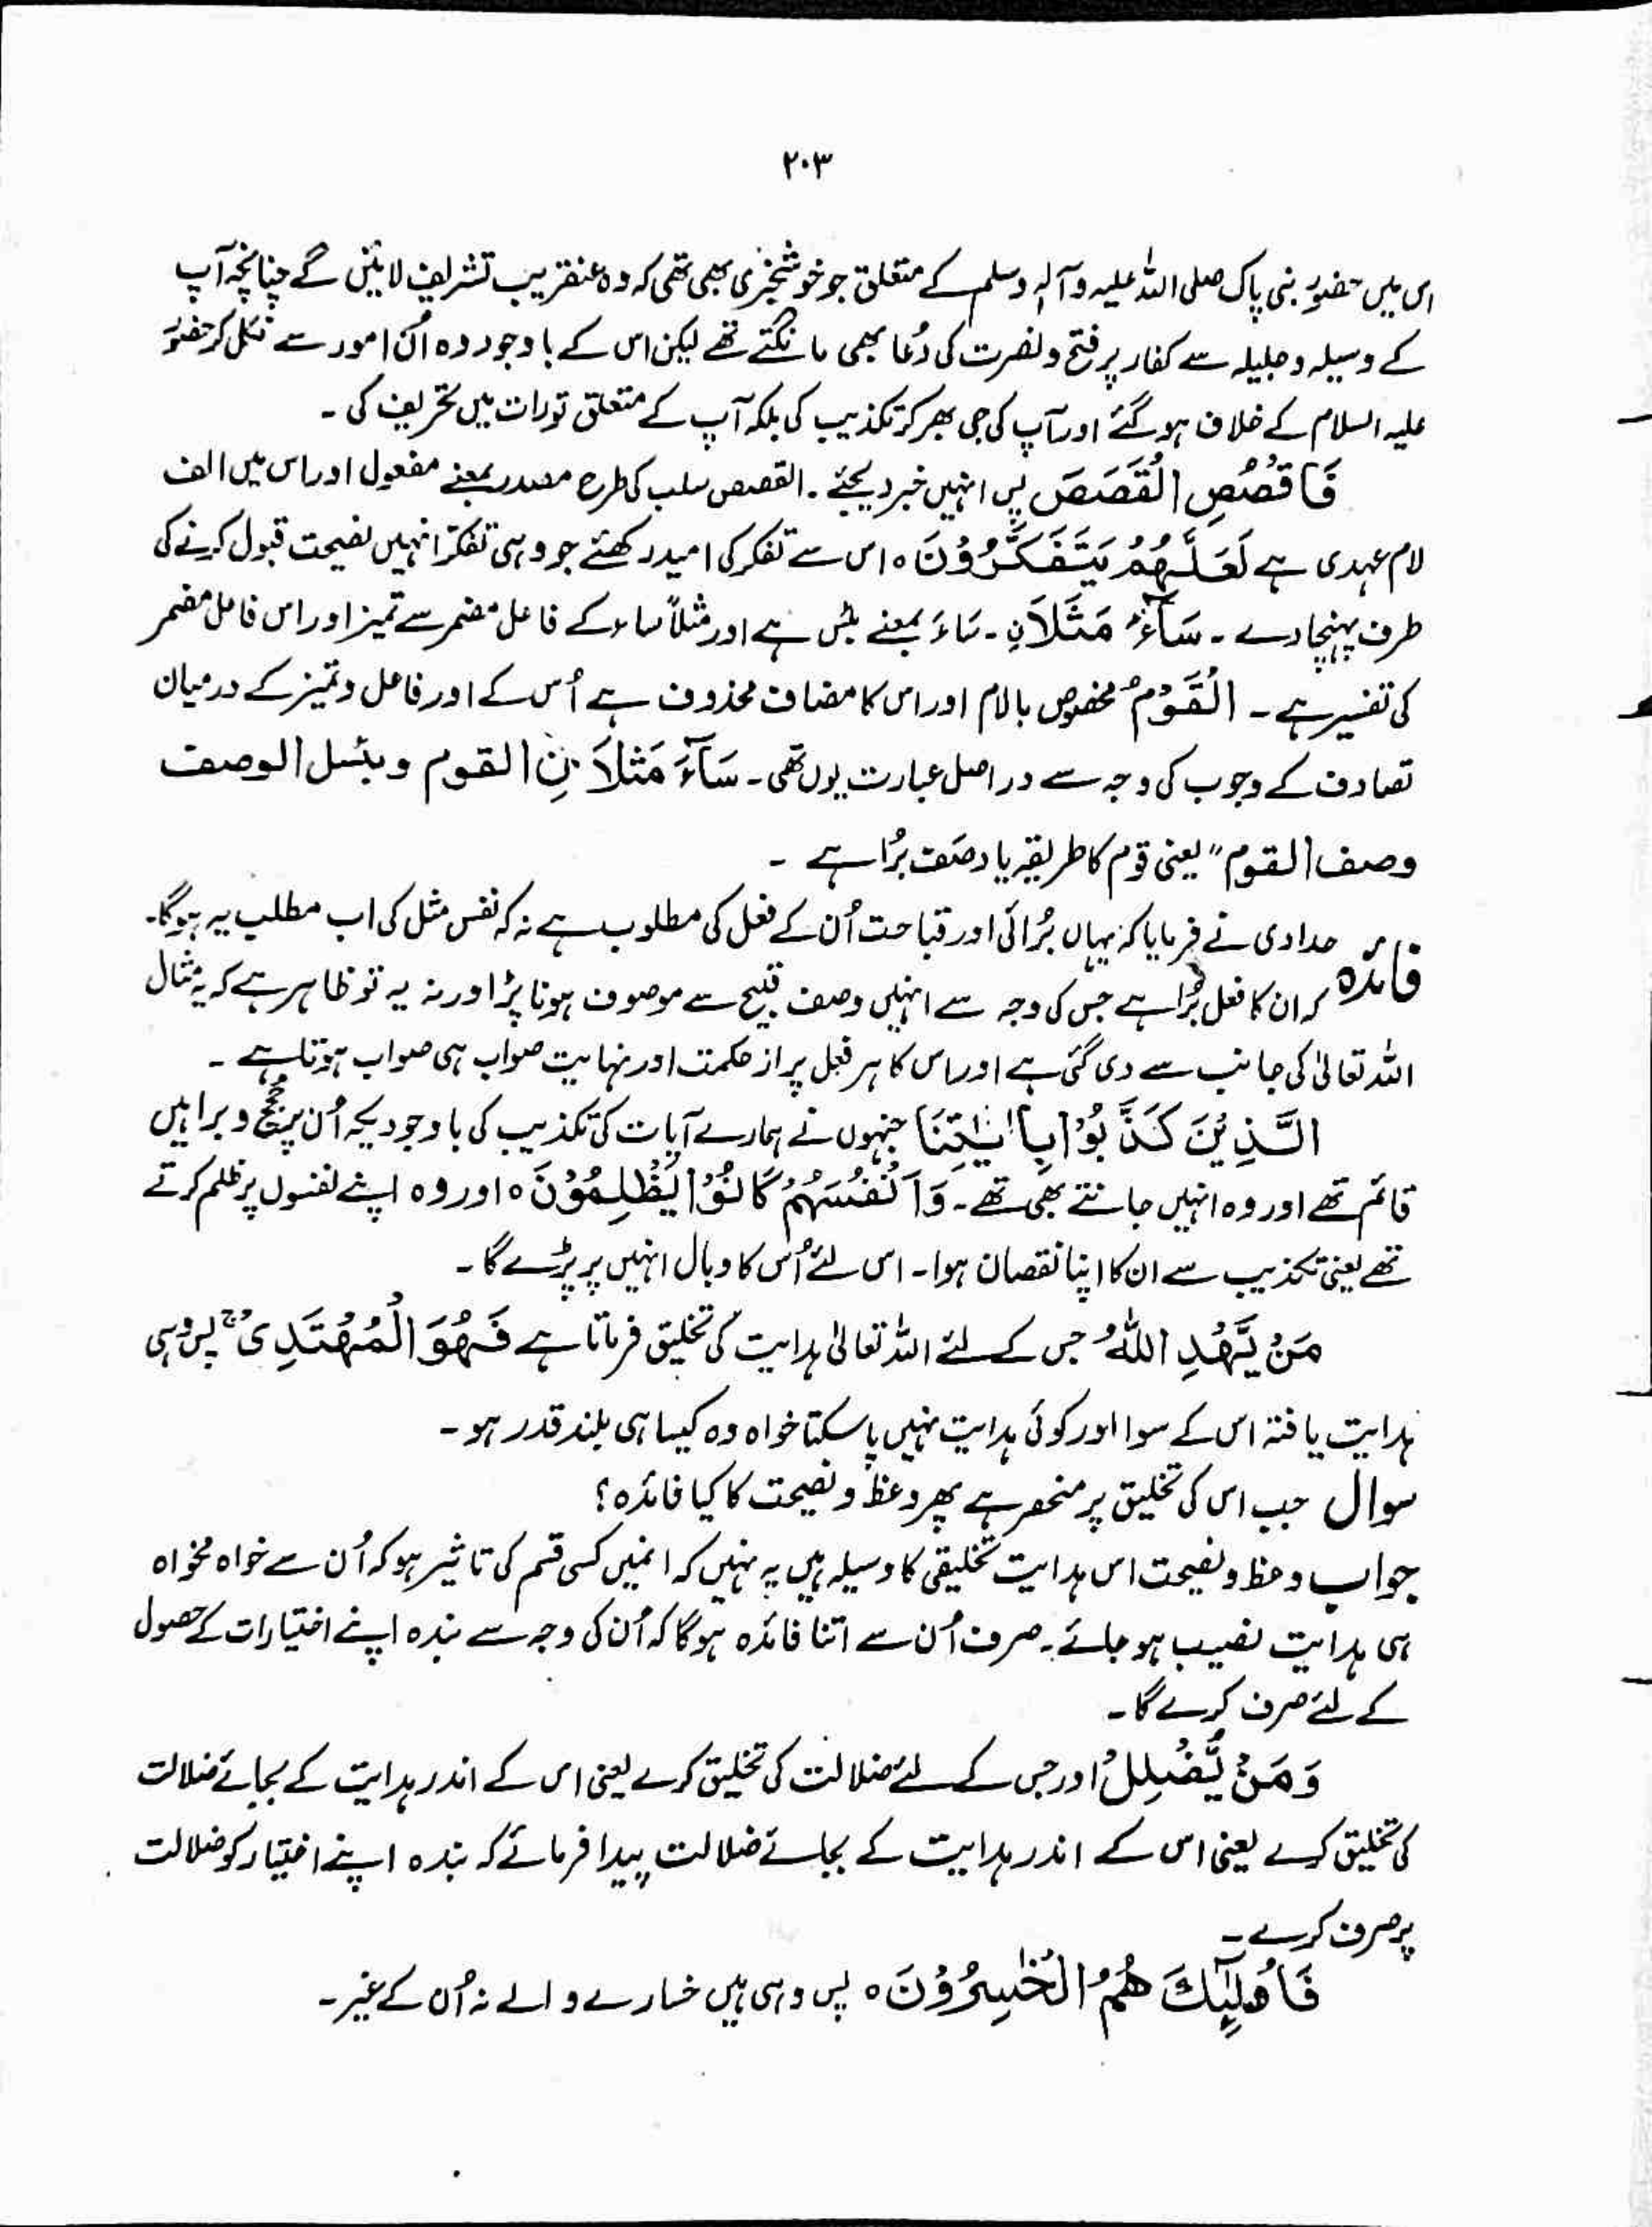 ۲۰۳
اس میں حضور نبی پاک صلی اللہ علیہ وآلہٖ وسلم کے متعلق جو خوشخبری بھی تھی کہ وہ عنقریب تشریف لائیں گے چنانچہ آپ
کے وسیلہ و جلیلہ سے کفار پر فتح و نصرت کی دُعا بھی مانگتے تھے لیکن اس کے باوجود وہ اُن امور سے نکل کر حضور
علیہ السلام کے خلاف ہو گئے اور آپ کی جی بھر کر تکذیب کی بلکہ آپ کے متعلق تورات میں تحریف کی ۔
فَاقْصُصِ الْقَصَصَ پس انہیں خبر دیجئے ۔ القصص سلب کی طرح مصدر بمعنے مفعول اور اس میں الف
لام عہدی ہے لَعَلَّهُمْ يَتَفَكَّرُوْنَ ہ اس سے تفکر کی امید رکھئے جو وہی تفکر انہیں نصیحت قبول کرنے کی
طرف پہنچا دے ۔ سَآءَ مَثَلَانِ ۔ سَاءَ بمعنے بئس ہے اور مثلاً ساء کے فاعل مضمر سے تمیز اور اس فاعل مضمر
کی تفسیر ہے ۔ الْقَوْمُ مخصوص بالام اور اس کا مضاف محذوف ہے اُس کے اور فاعل و تمیز کے درمیان
تصادف کے وجوب کی وجہ سے در اصل عبارت یوں تھی ۔ سَآءَ مَثَلَا نِ القوم وبئسل الوصف
وصف القوم" یعنی قوم کا طریقہ یا وصف بُرا ہے ۔
فائدہ حدادی نے فرمایا کہ یہاں بُرائی اور قباحت اُن کے فعل کی مطلوب ہے نہ کہ نفس مثل کی اب مطلب یہ ہوگا ۔
کہ ان کا فعل بُرا ہے جس کی وجہ سے انہیں وصف قبیح سے موصوف ہونا پڑا ورنہ یہ تو ظاہر ہے کہ یہ مثال
اللہ تعالیٰ کی جانب سے دی گئی ہے اور اس کا ہر فعل پر از حکمت اور نہایت صواب ہی صواب ہوتا ہے ۔
الَّذِيْنَ كَذَّبُوْا بِاٰيٰتِنَا جنہوں نے ہمارے آیات کی تکذیب کی باوجودیکہ اُن پر حجج و براہیں
قائم تھے اور وہ انہیں جانتے بھی تھے ۔ وَاَنْفُسَهُمْ كَانُوْا يَظْلِمُوْنَ ہ اور وہ اپنے نفسوں پر ظلم کرتے
تھے یعنی تکذیب سے ان کا اپنا نقصان ہوا ۔ اس لئے اُس کا وبال انہیں پر پڑے گا ۔
مَنْ يَّهْدِ اللّٰهُ جس کے لئے اللہ تعالیٰ ہدایت کی تخلیق فرماتا ہے فَهُوَ الْمُهْتَدِیْ ج پس وہی
ہدایت یافتہ اس کے سوا اور کوئی ہدایت نہیں پا سکتا خواہ وہ کیسا ہی بلند قدر ہو ۔
سوال جب اس کی تخلیق پر منحصر ہے پھر وعظ و نصیحت کا کیا فائدہ ؟
جواب وعظ و نصیحت اس ہدایت تخلیقی کا وسیلہ ہیں یہ نہیں کہ انمیں کسی قسم کی تاثیر ہو کہ اُن سے خواہ مخواہ
ہی ہدایت نصیب ہو جائے ۔ صرف اُن سے اتنا فائدہ ہوگا کہ اُن کی وجہ سے بندہ اپنے اختیارات کے حصول
کے لئے صرف کرے گا ۔
وَمَنْ يُّضْلِلْ اور جس کے لئے ضلالت کی تخلیق کرے یعنی اس کے اندر ہدایت کے بجائے ضلالت
کی تخلیق کرے یعنی اس کے اندر ہدایت کے بجائے ضلالت پیدا فرمائے کہ بندہ اپنے اختیار کو ضلالت
پر صرف کرے ۔
فَاُولٰٓئِكَ هُمُ الْخٰسِرُوْنَ ہ پس وہی ہیں خسارے والے نہ اُن کے غیر ۔